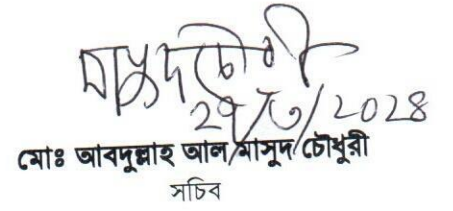 মাসুদ চৌধুরী
২৭/৩/২০২৪
মোঃ আবদুল্লাহ আল মাসুদ চৌধুরী
সচিব